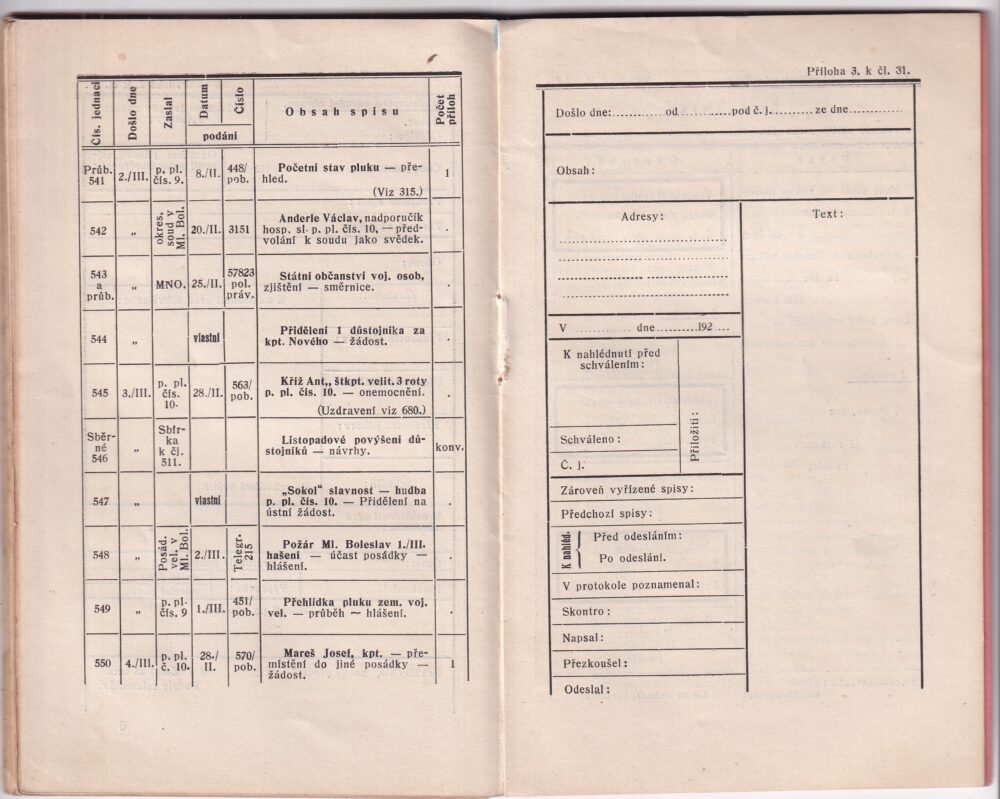 Čís. jednací
Došlo dne
Zaslal
Datum
Číslo
podání
Obsah spisu
Počet
příloh
Průb.
541
2./III.
p. pl.
čís. 9.
8./II.
448/
pob.
Početní stav pluku — pře-
hled.
(Viz 315.)
1
542
„
okres.
soud v
Ml. Bol.
20./II.
3151
Anderle Václav, nadporučík
hosp. sl. p. pl. čís. 10, — před-
volání k soudu jako svědek.
.
543
a
průb.
„
MNO.
25./II.
57823
pol.
práv.
Státní občanství voj. osob,
zjištění — směrnice.
.
544
„
vlastní
Přidělení 1 důstojníka za
kpt. Nového — žádost.
.
545
3./III.
p. pl.
čís.
10.
28./II.
563/
pob.
Kříž Ant., štkpt. velit. 3 roty
p. pl. čís. 10. — onemocnění.
(Uzdravení viz 680.)
.
Sběr-
né
546
„
Sbír-
ka
k čj.
511.
Listopadové povýšení dů-
stojníků — návrhy.
konv.
547
„
vlastní
„Sokol“ slavnost — hudba
p. pl. čís. 10. — Přidělení na
ústní žádost.
.
548
„
Posád.
vel. v
Ml. Bol.
2./III.
Telegr.
215
Požár Ml. Boleslav 1./III.
hašení — účast posádky —
hlášení.
.
549
„
p. pl.
čís. 9
1./III.
451/
pob.
Přehlídka pluku zem. voj.
vel. — průběh — hlášení.
.
550
4./III.
p. pl.
č. 10.
28./
II.
570/
pob.
Mareš Josef, kpt. — pře-
místění do jiné posádky —
žádost.
1
Příloha 3. k čl. 31.
Došlo dne:............ od ............ pod č. j. ............ ze dne............
Obsah:
Adresy:
Text:
V ............ dne ............192 ...
K nahlédnutí před
schválením:
Přiložiti:
Schváleno:
Č. j.
Zároveň vyřízené spisy:
Předchozí spisy:
K nahléd.
Před odesláním:
Po odeslání.
V protokole poznamenal:
Skontro:
Napsal:
Přezkoušel:
Odeslal: